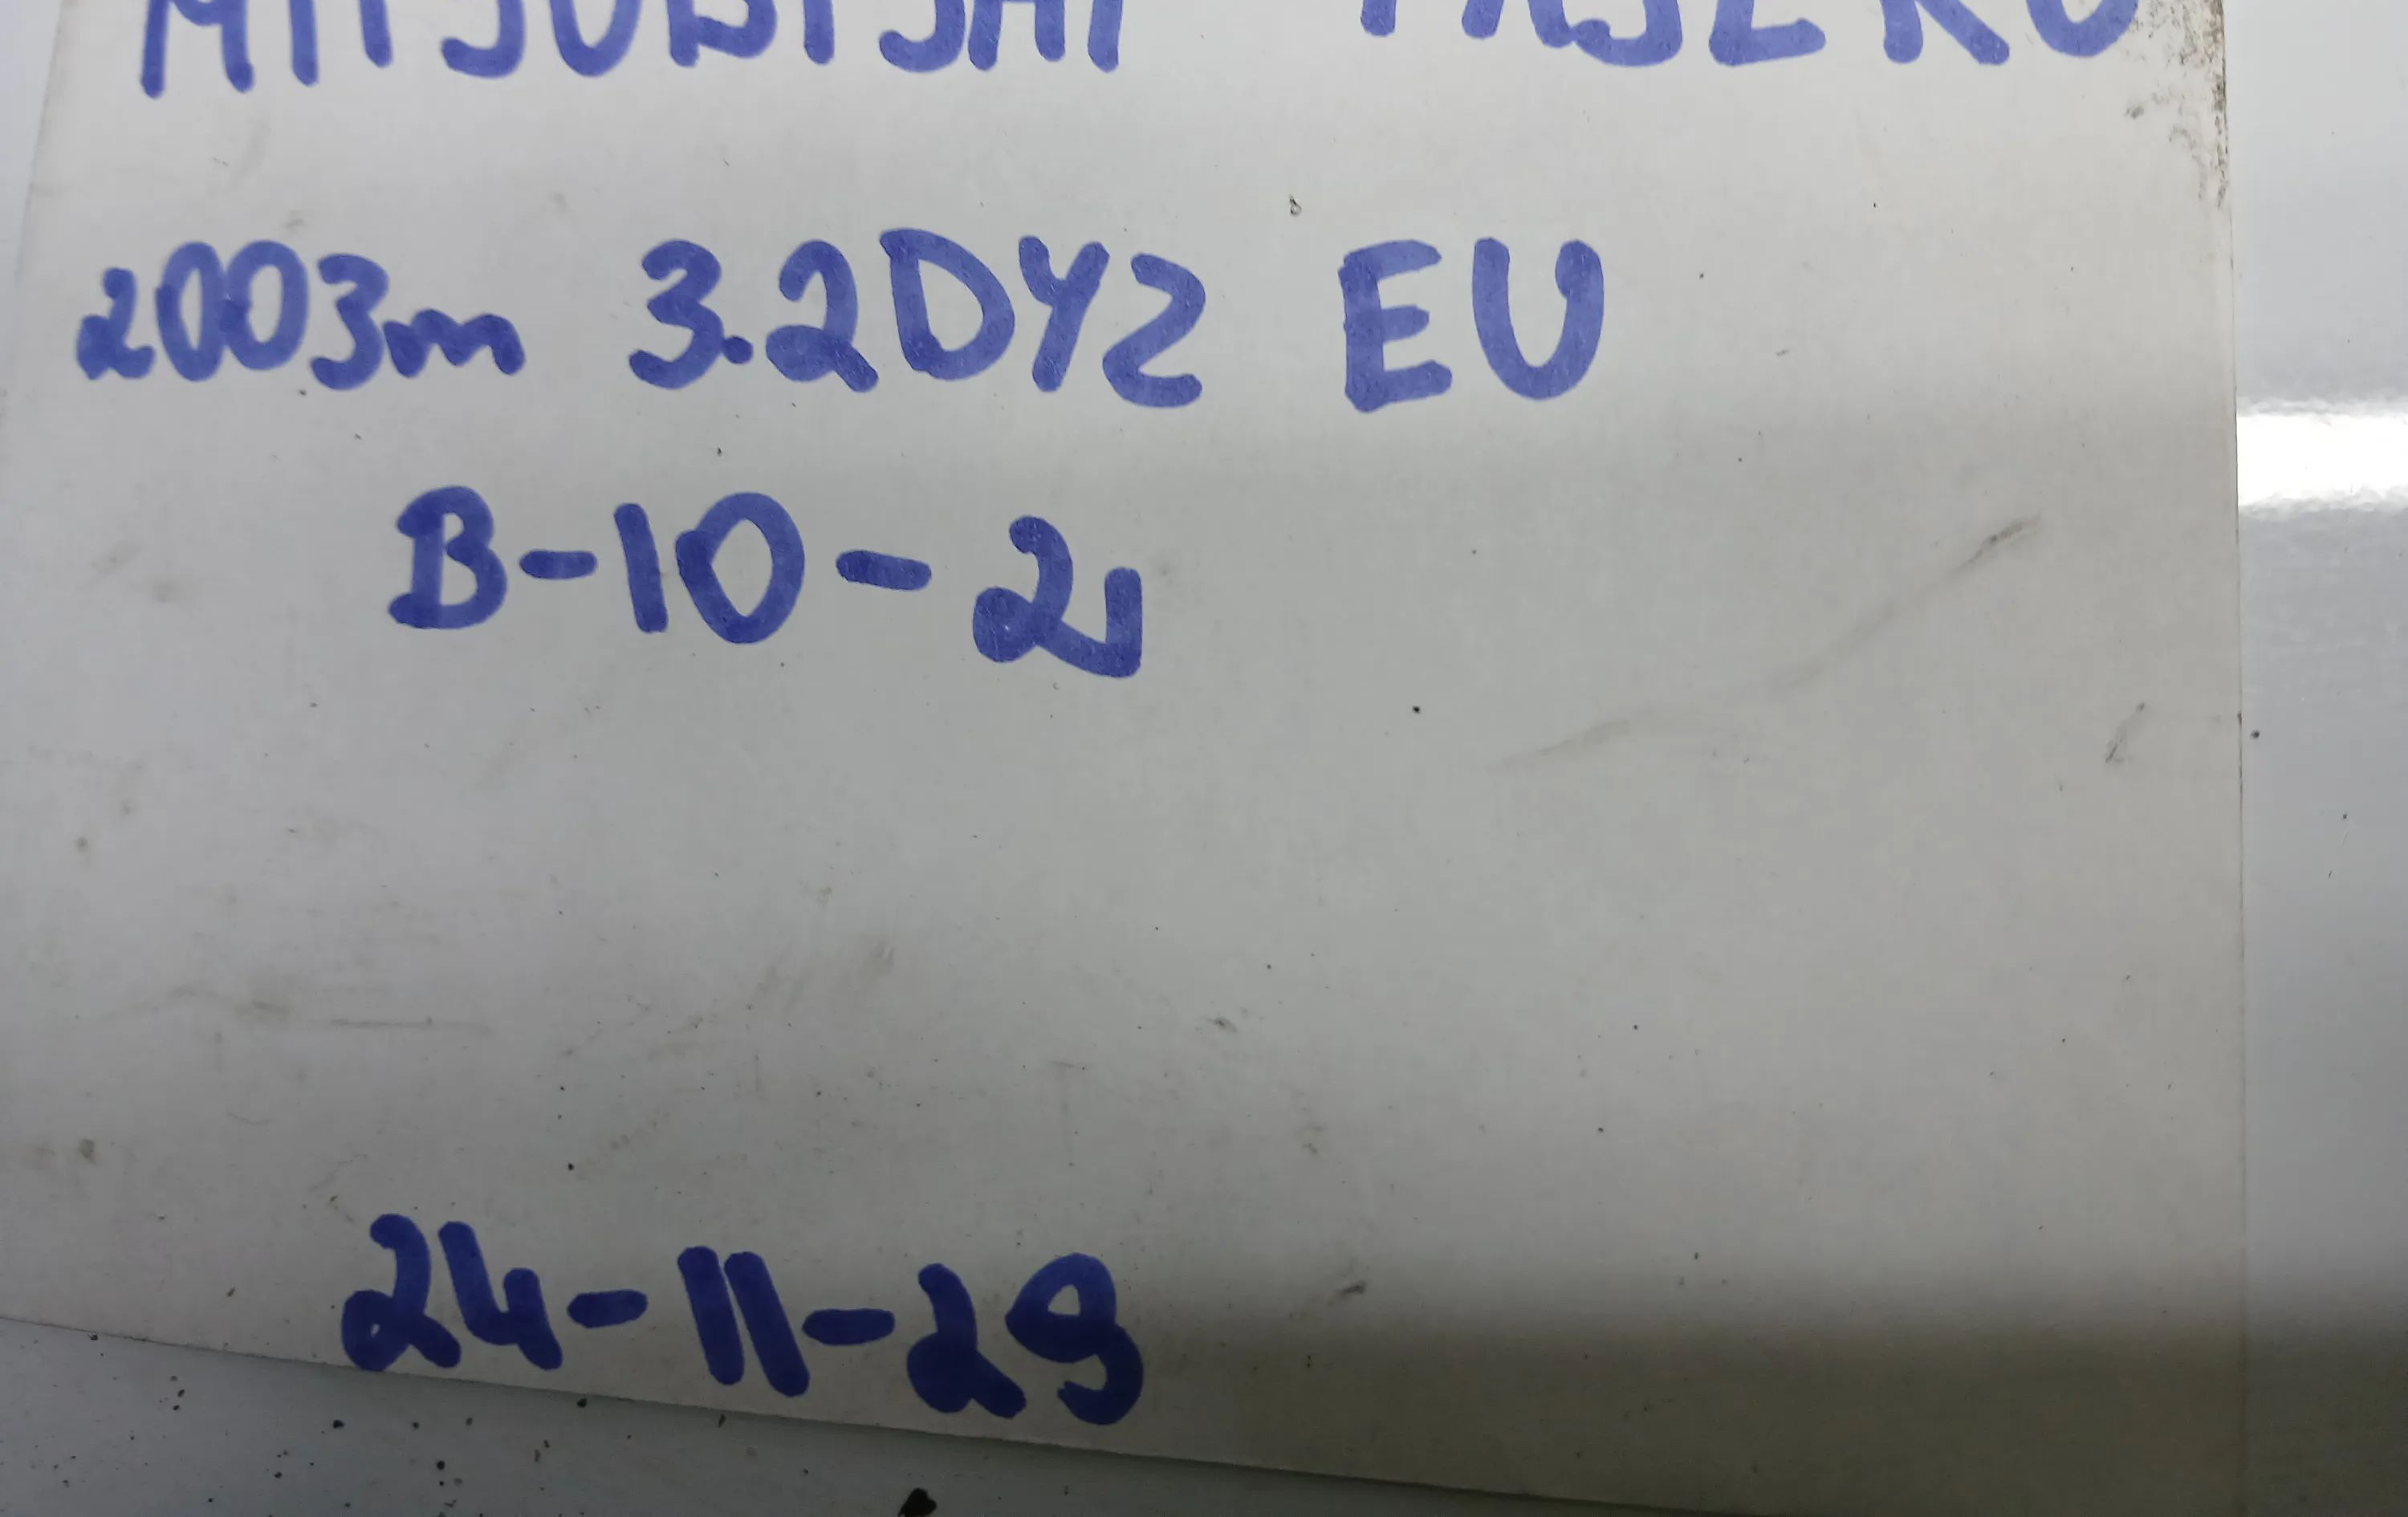 MITSUBISHI PAJERO
2003m 3.2DYZ EU
B-10-2
24-11-29